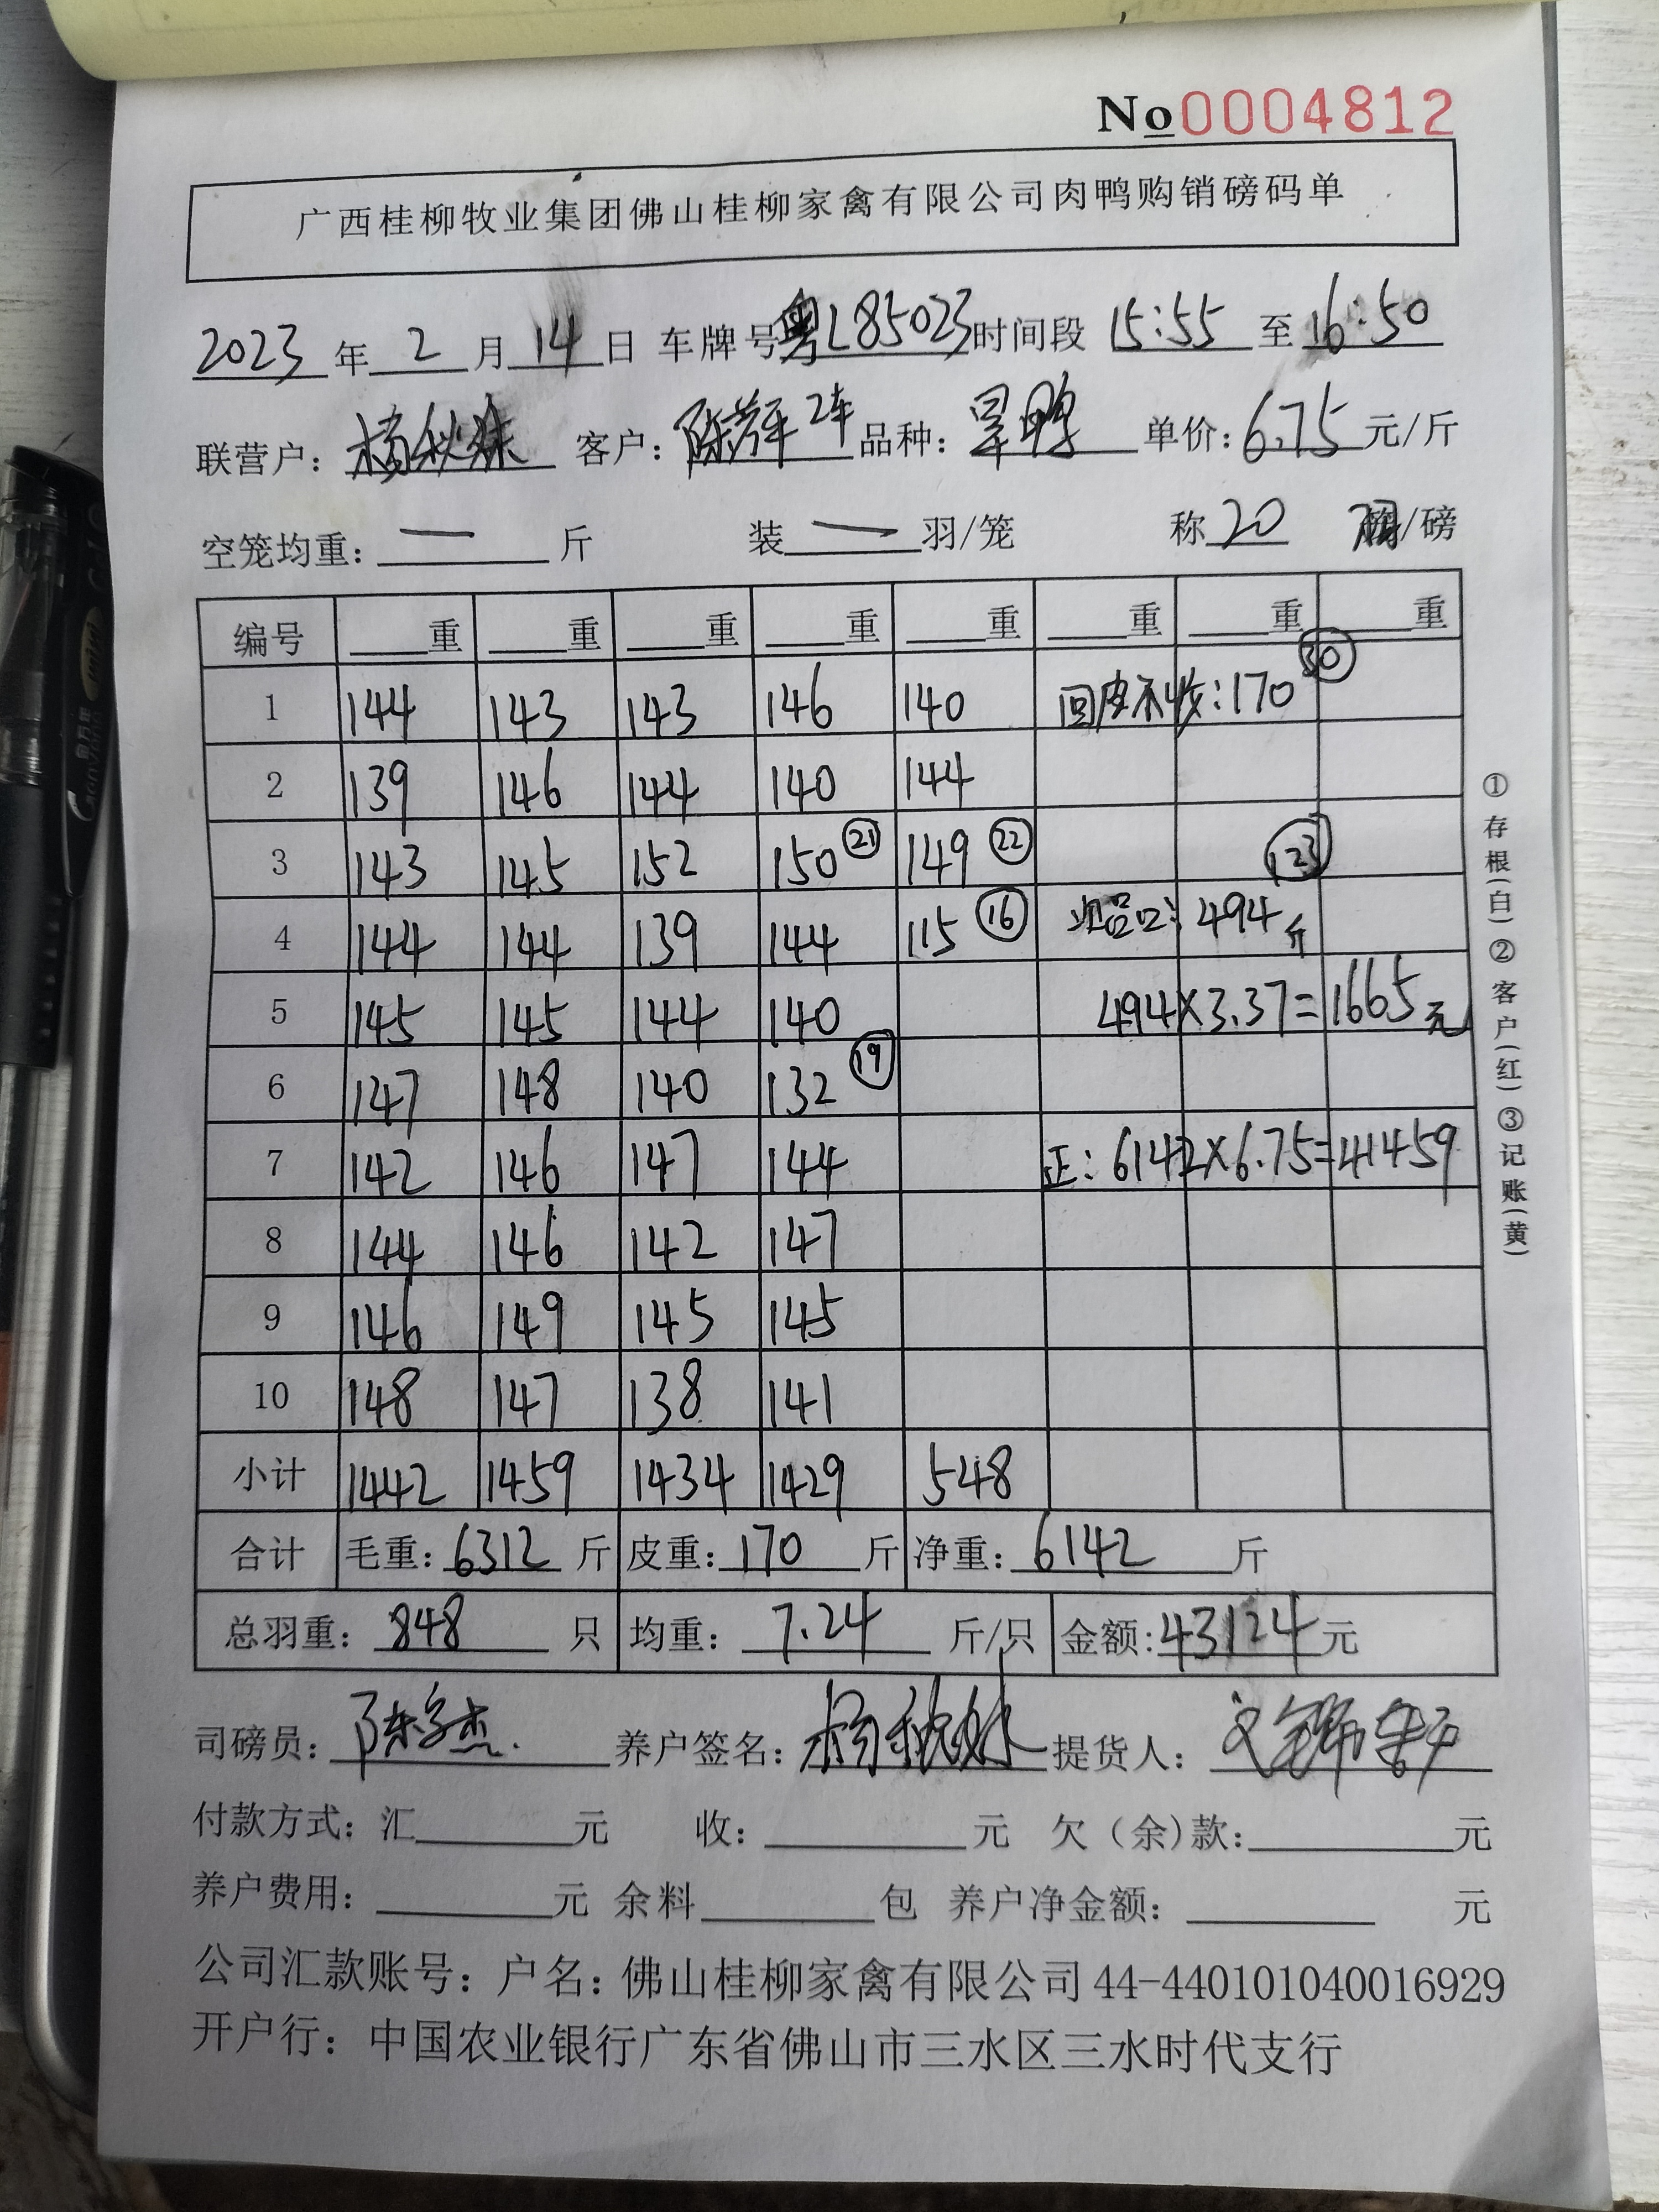 No 0004812
广西桂柳牧业集团佛山桂柳家禽有限公司肉鸭购销磅码单
2023 年 2 月 14 日 车牌号 粤L85023 时间段 15:55 至 16:50
联营户: 杨秋妹 客户: 陈辉 2车 品种: 旱鸭 单价: 6.75 元/斤
空笼均重: — 斤 装 — 羽/笼 称 20 /磅
编号 重 重 重 重 重 重 重 重
1 144 143 143 146 140 回皮不收:170 30
2 139 146 144 140 144
3 143 145 152 150 21 149 22 123
4 144 144 139 144 115 16 494斤
5 145 145 144 140 494×3.37=1665元
6 147 148 140 132 19
7 142 146 147 144 正: 6142×6.75=41459
8 144 146 142 147
9 146 149 145 145
10 148 147 138 141
小计 1442 1459 1434 1429 548
合计 毛重: 6312 斤 皮重: 170 斤 净重: 6142 斤
总羽重: 848 只 均重: 7.24 斤/只 金额: 43124 元
司磅员: 养户签名: 杨秋妹 提货人:
付款方式: 汇 元 收: 元 欠(余)款: 元
养户费用: 元 余料 包 养户净金额: 元
公司汇款账号: 户名: 佛山桂柳家禽有限公司 44-440101040016929
开户行: 中国农业银行广东省佛山市三水区三水时代支行
①存根(白)②客户(红)③记账(黄)